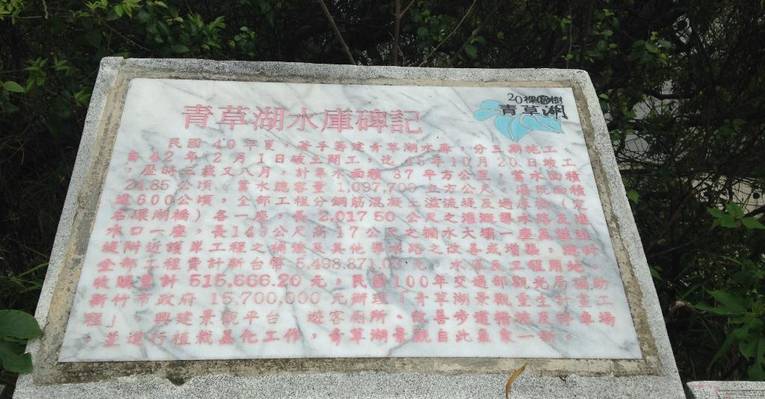 青草湖水庫碑記
20棵樹
青草湖
民國40年夏,著手籌建青草湖水庫,分三期施工
2年2月1日破土開工,迄45年10月20日竣工
,歷時三載又八月,計集水面積37平方公里,蓄水面積
21.85公頃,蓄水總容量1,097,700立方公尺,灌溉面積
達600公頃,全部工程分鋼筋混凝土溢流堤及
名環湖橋)各一座,長2,017.50公尺之灌溉導水路
水口一座,長公尺高17公尺之攔水大壩一座
附近護岸工程之補強及其他之改善或增益
全部工程費計新台幣元,水庫及工程用地
收購費計515,666.20元,民國100年交通部觀光局補助
新竹市政府15,700,000元辦理「青草湖景觀重生計畫工
程」,興建景觀平台、遊客廁所、改善步道、停車場
,並進行植栽美化工作,青草湖景觀自此氣象一新。